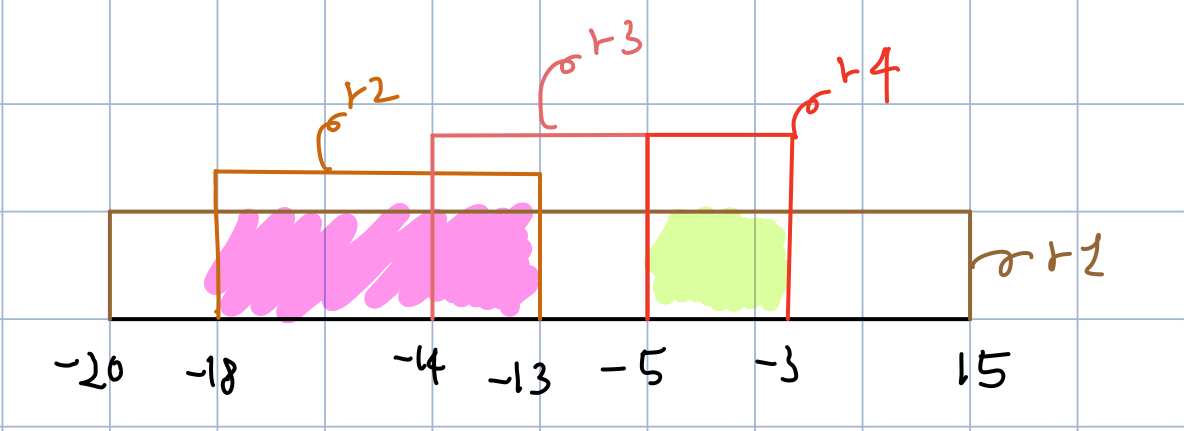 r3
r4
r2
r1
-20 -18 -14 -13 -5 -3 15